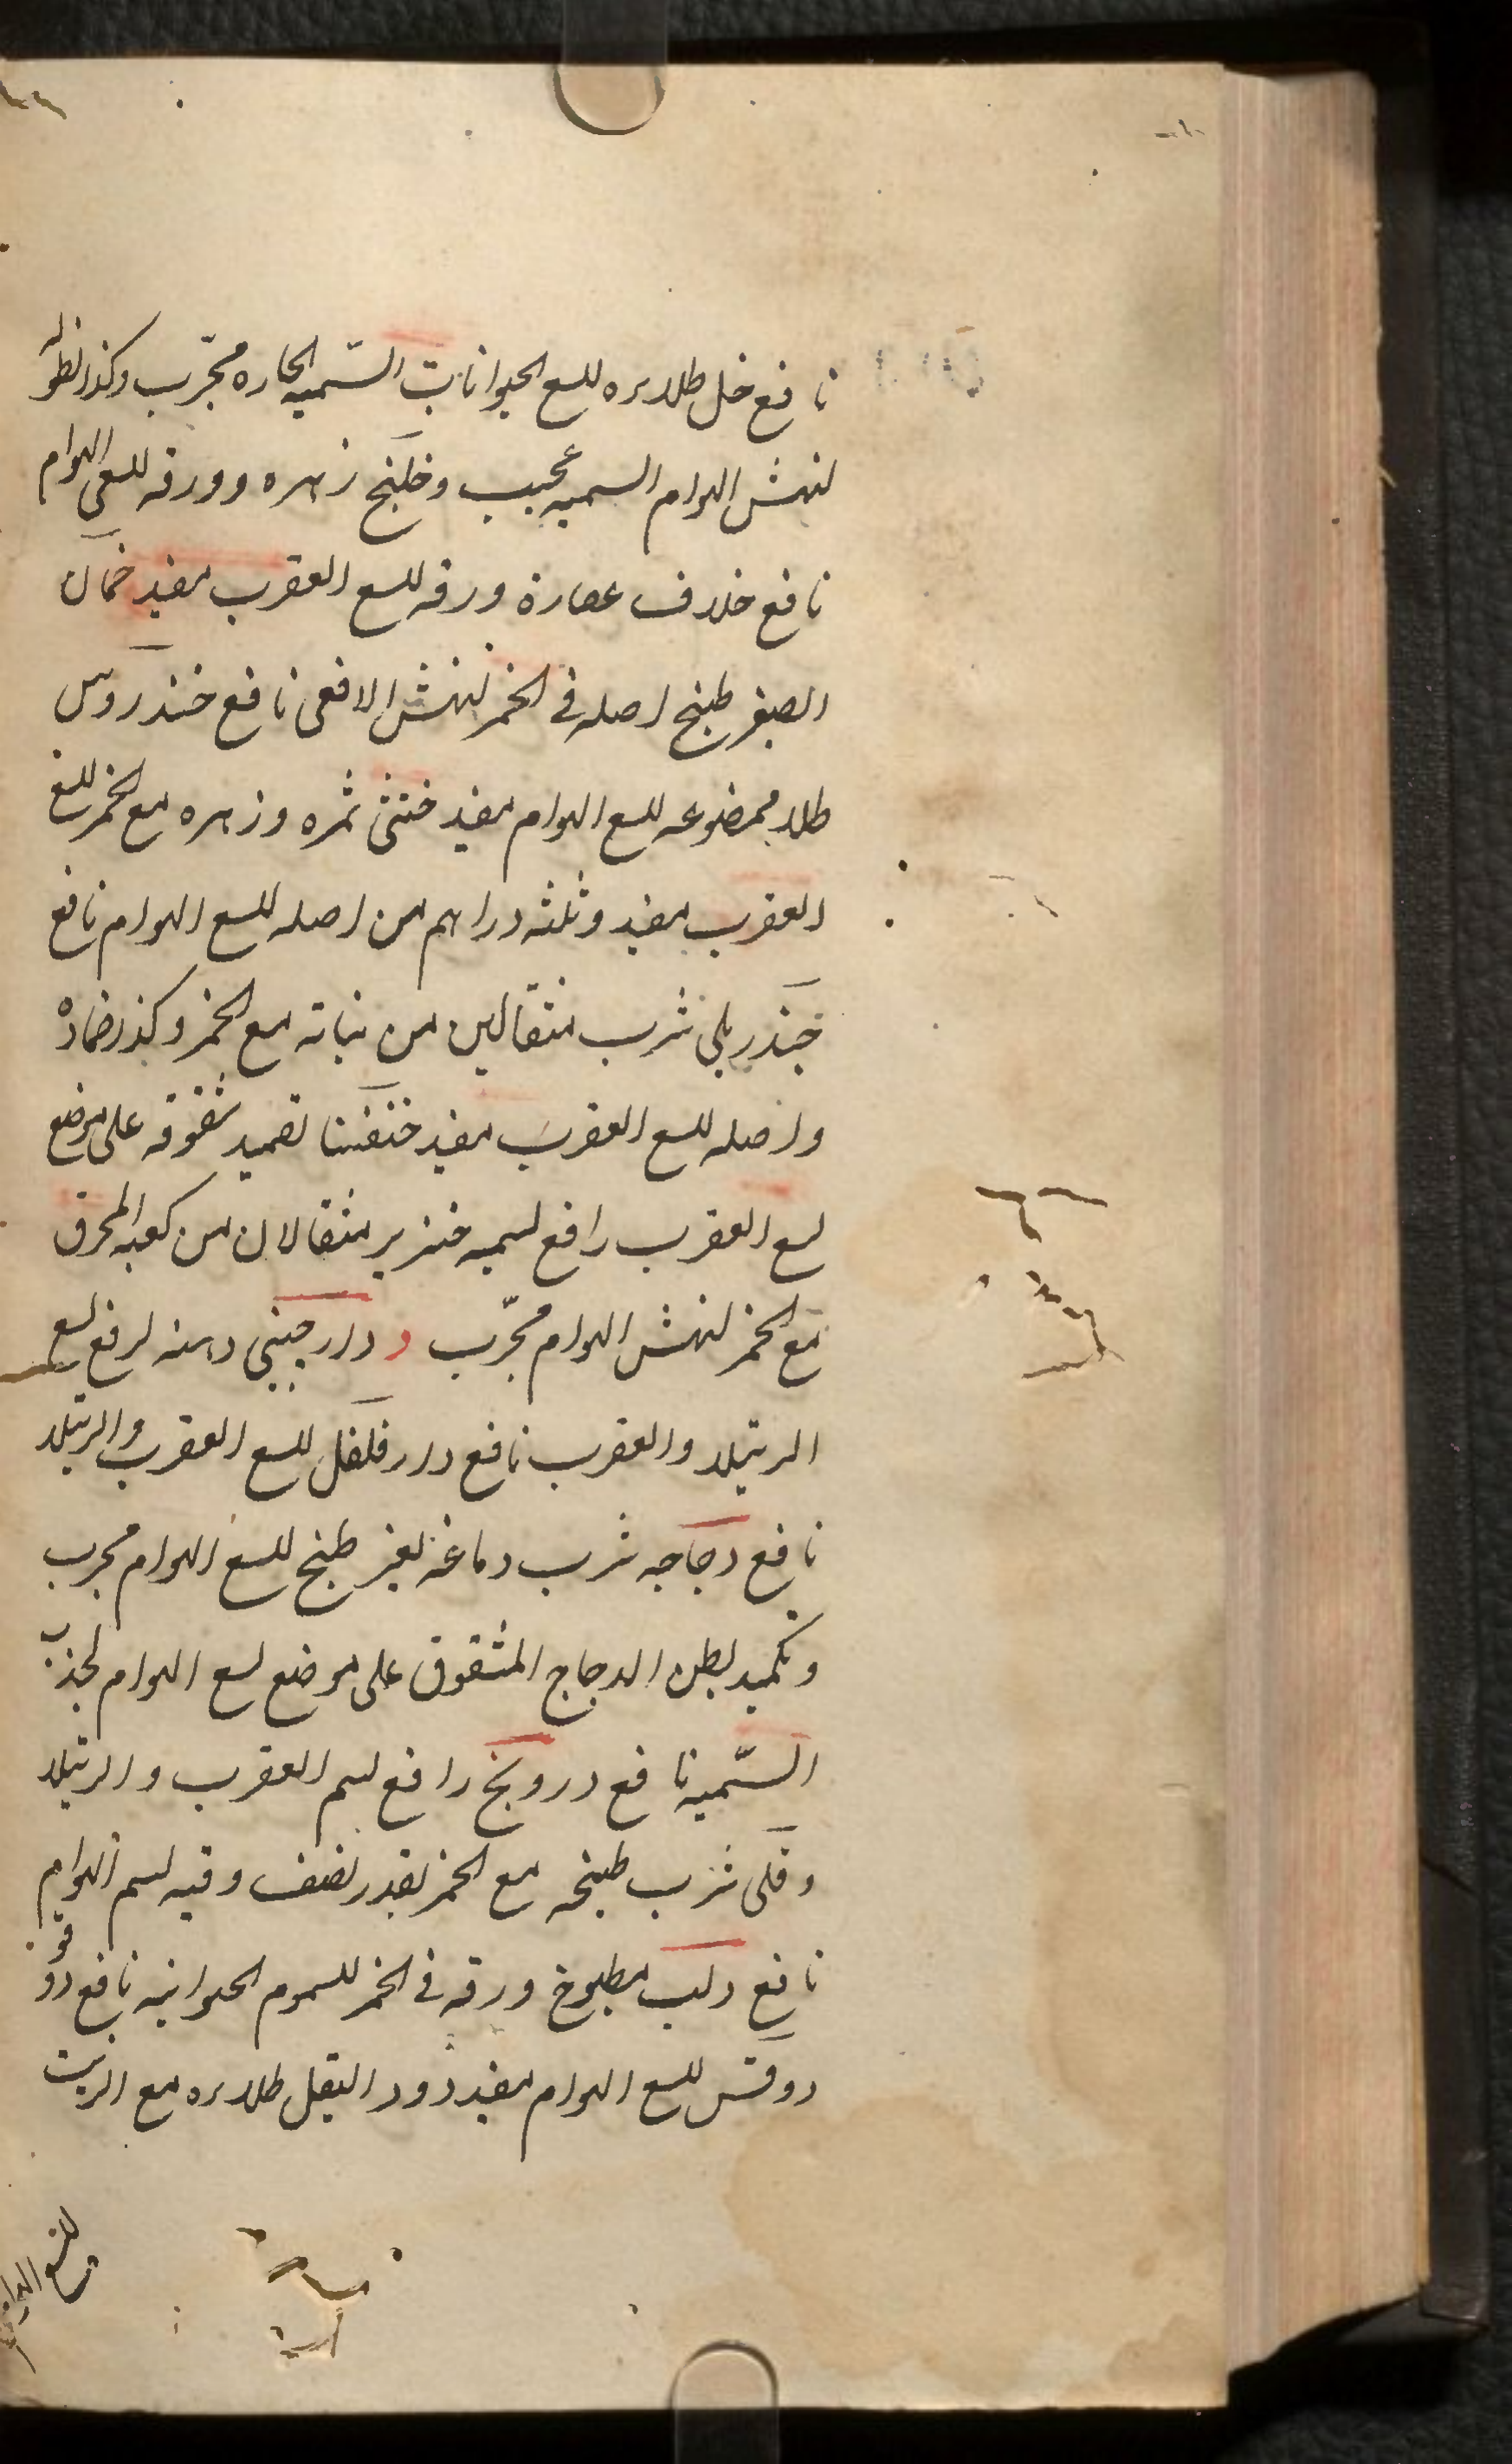 نافع خل طلاءه للسع الحيوانات السّميه الحاره مجرّب وكذا نطوله
لنهش الهوام السميه عجيب وخلنج زهره وورقه للسعى الهوام
نافع خلاف عصارة ورقه للسع العقرب مفيد خمان
الصغير طبخ اصله فى الخمر لنهش الافعى نافع خندروس
طلاء ممضوغه للسع الهوام مفيد خنثى ثمره وزهره مع الخمر للسع
العقرب مفيد وثلثه دراهم من اصله للسع الهوام نافع
خندريلي شرب مثقالين من نباته مع الخمر وكذا ضماده
واصله للسع العقرب مفيد خنفسا تضميد شقوقه على موضع
لسع العقرب رافع لسميه خنزير مثقالان من كعبه المحرق
مع الخمر لنهش الهوام مجرّب د دارجيني دهنه لرفع لسع
الرتيلا والعقرب نافع دارفلفل للسع العقرب والرتيلا
نافع دجاجه شرب دماغه بغير طبخ للسع الهوام مجرب
وتكميد بطن الدجاج المشقوق على موضع لسع الهوام لجذب
السّميه نافع درونج رافع لسم العقرب والرتيلا
دفلى شرب طبخه مع الخمر بقدر نصف وقيه لسم الهوام
نافع دلب مطبوخ ورقه فى الخمر للسموم الحيوانيه نافع دوقو
دوقس للسع الهوام مفيد دود البقل طلاءه مع الزيت
للسع الهوام